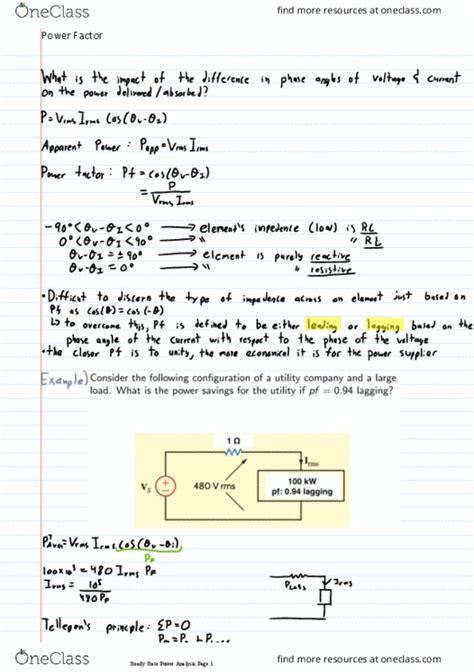 OneClass
find more resources at oneclass.com
Power Factor
What is the impact of the difference in phase angles of voltage & current
on the power delivered/absorbed?
P=Vrms Irms Cos(θv-θI)
Apparent Power: Papp=Vrms Irms
Power factor: Pf=cos(θv-θI)
= P / Vrms Irms
-90°<θv-θI<0° → element's impedence (load) is RC
0°<θv-θI<90° → " " RL
θv-θI=±90° → element is purely reactive
θv-θI=0° → " " resistive
•Difficult to discern the type of impedence across an element just based on
Pf as cos(θ)=cos(-θ)
↳ to overcome this, Pf is defined to be either leading or lagging based on the
phase angle of the current with respect to the phase of the voltage
•the closer Pf is to unity, the more economical it is for the power supplier
Example) Consider the following configuration of a utility company and a large
load. What is the power savings for the utility if pf = 0.94 lagging?
1 Ω
Irms
Vs
+
−
480 V rms
100 kW
pf: 0.94 lagging
Vrms Irms cos(θv-θi)
PF
100x10³=480 Irms PF
Irms = 10⁵ / 480 PF
PLoss
Irms
Tellegen's principle: ΣP=0
OneClass
Steady State Power Analysis Page 1
find more resources at oneclass.com